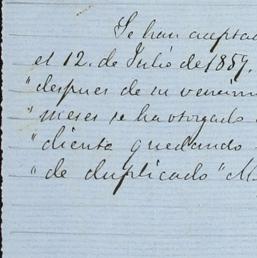 Se han acepta
el 12. de Julio de 1857.
"despues de su vencim
"meses se ha otorgado
"diente quedando
"de duplicado" M